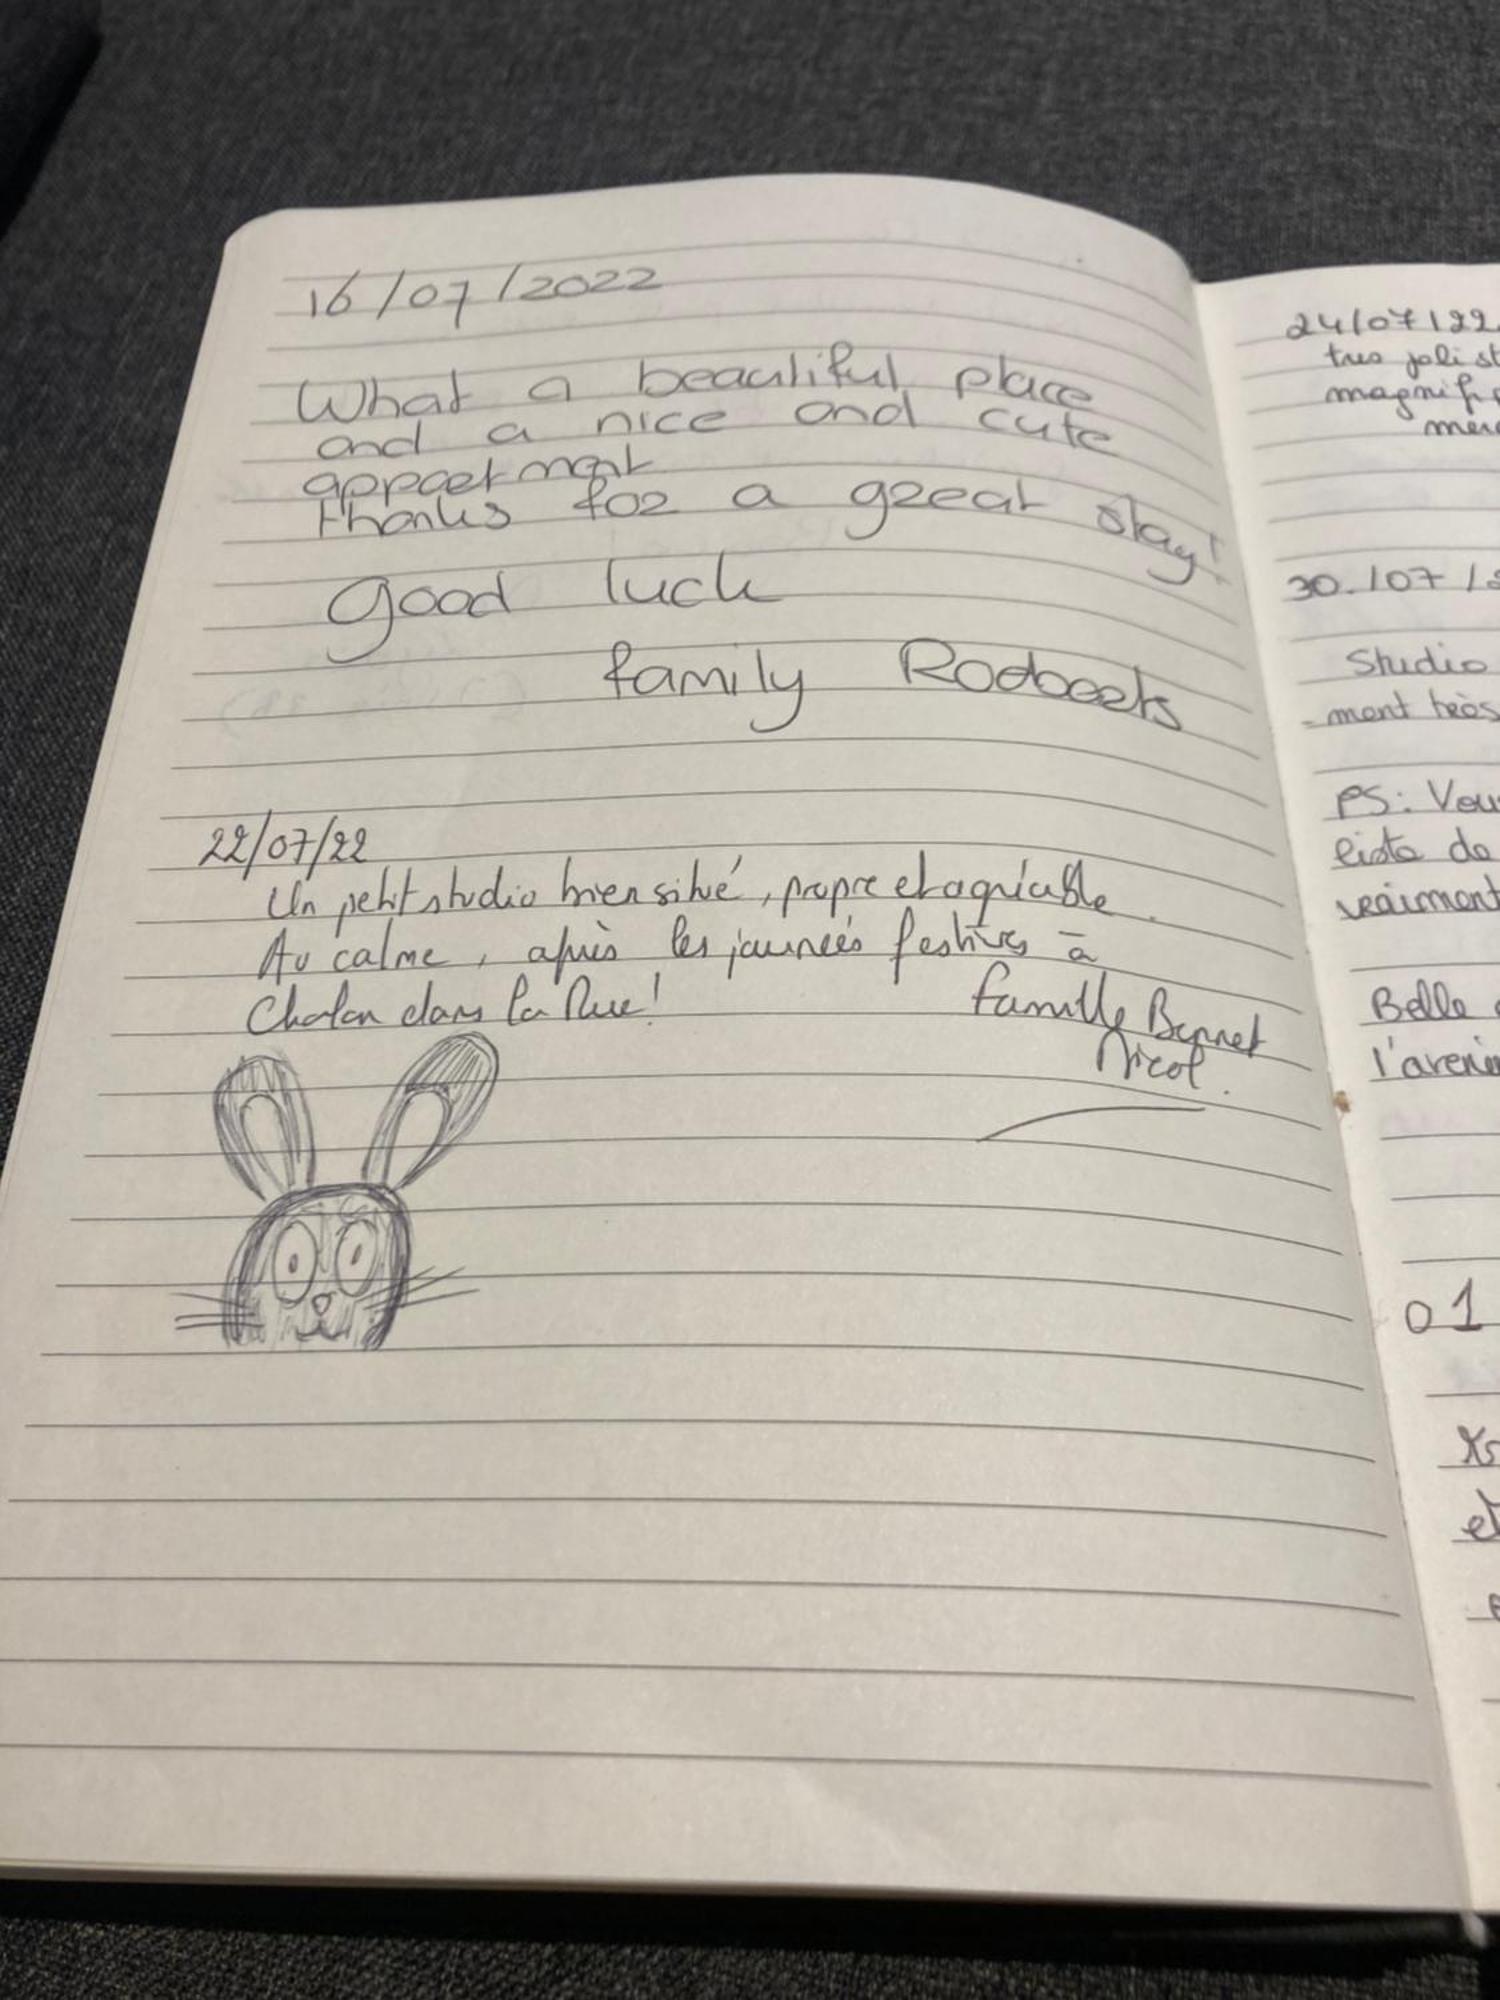 16/07/2022
What a beautiful place
and a nice and cute
appartment
thanks for a great stay!
good luck
family Rodoerts
22/07/22
Un petit studio bien situé, propre et agréable.
Au calme, après les journées festives à
Chalon dans la Rue!
famille Bonnet
Nicol.
24/07/22
tres joli st
magnifi
merc
30./07/2
Studio
-ment très
PS: Vous
liste de
vraiment
Belle
l'avenir
01
et